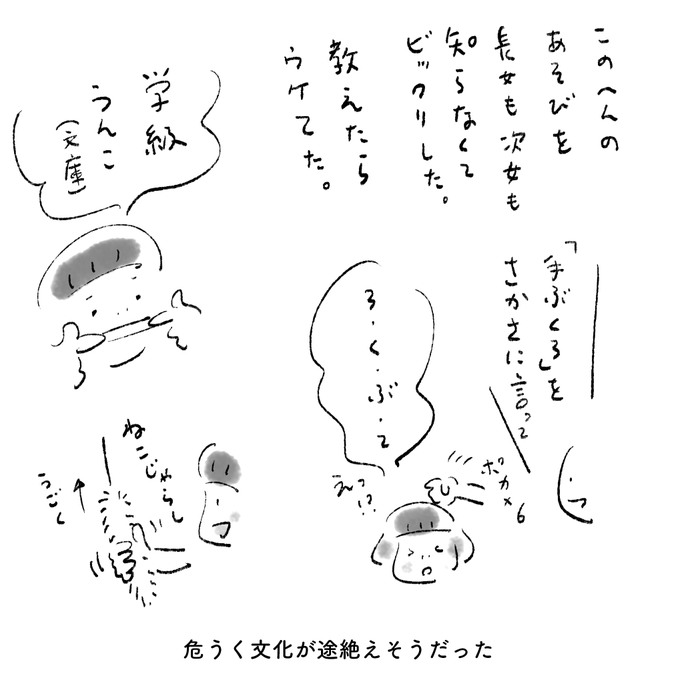 このへんの
あそびを
長女も次女も
知らなくて
ビックリした。
教えたら
ウケてた。
学級
うんこ
(文庫)
「手ぶくろ」を
さかさに言って
ろ・く・ぶ・て
ポカ×6
えっ!?
ねこじゃらし
うごく
危うく文化が途絶えそうだった